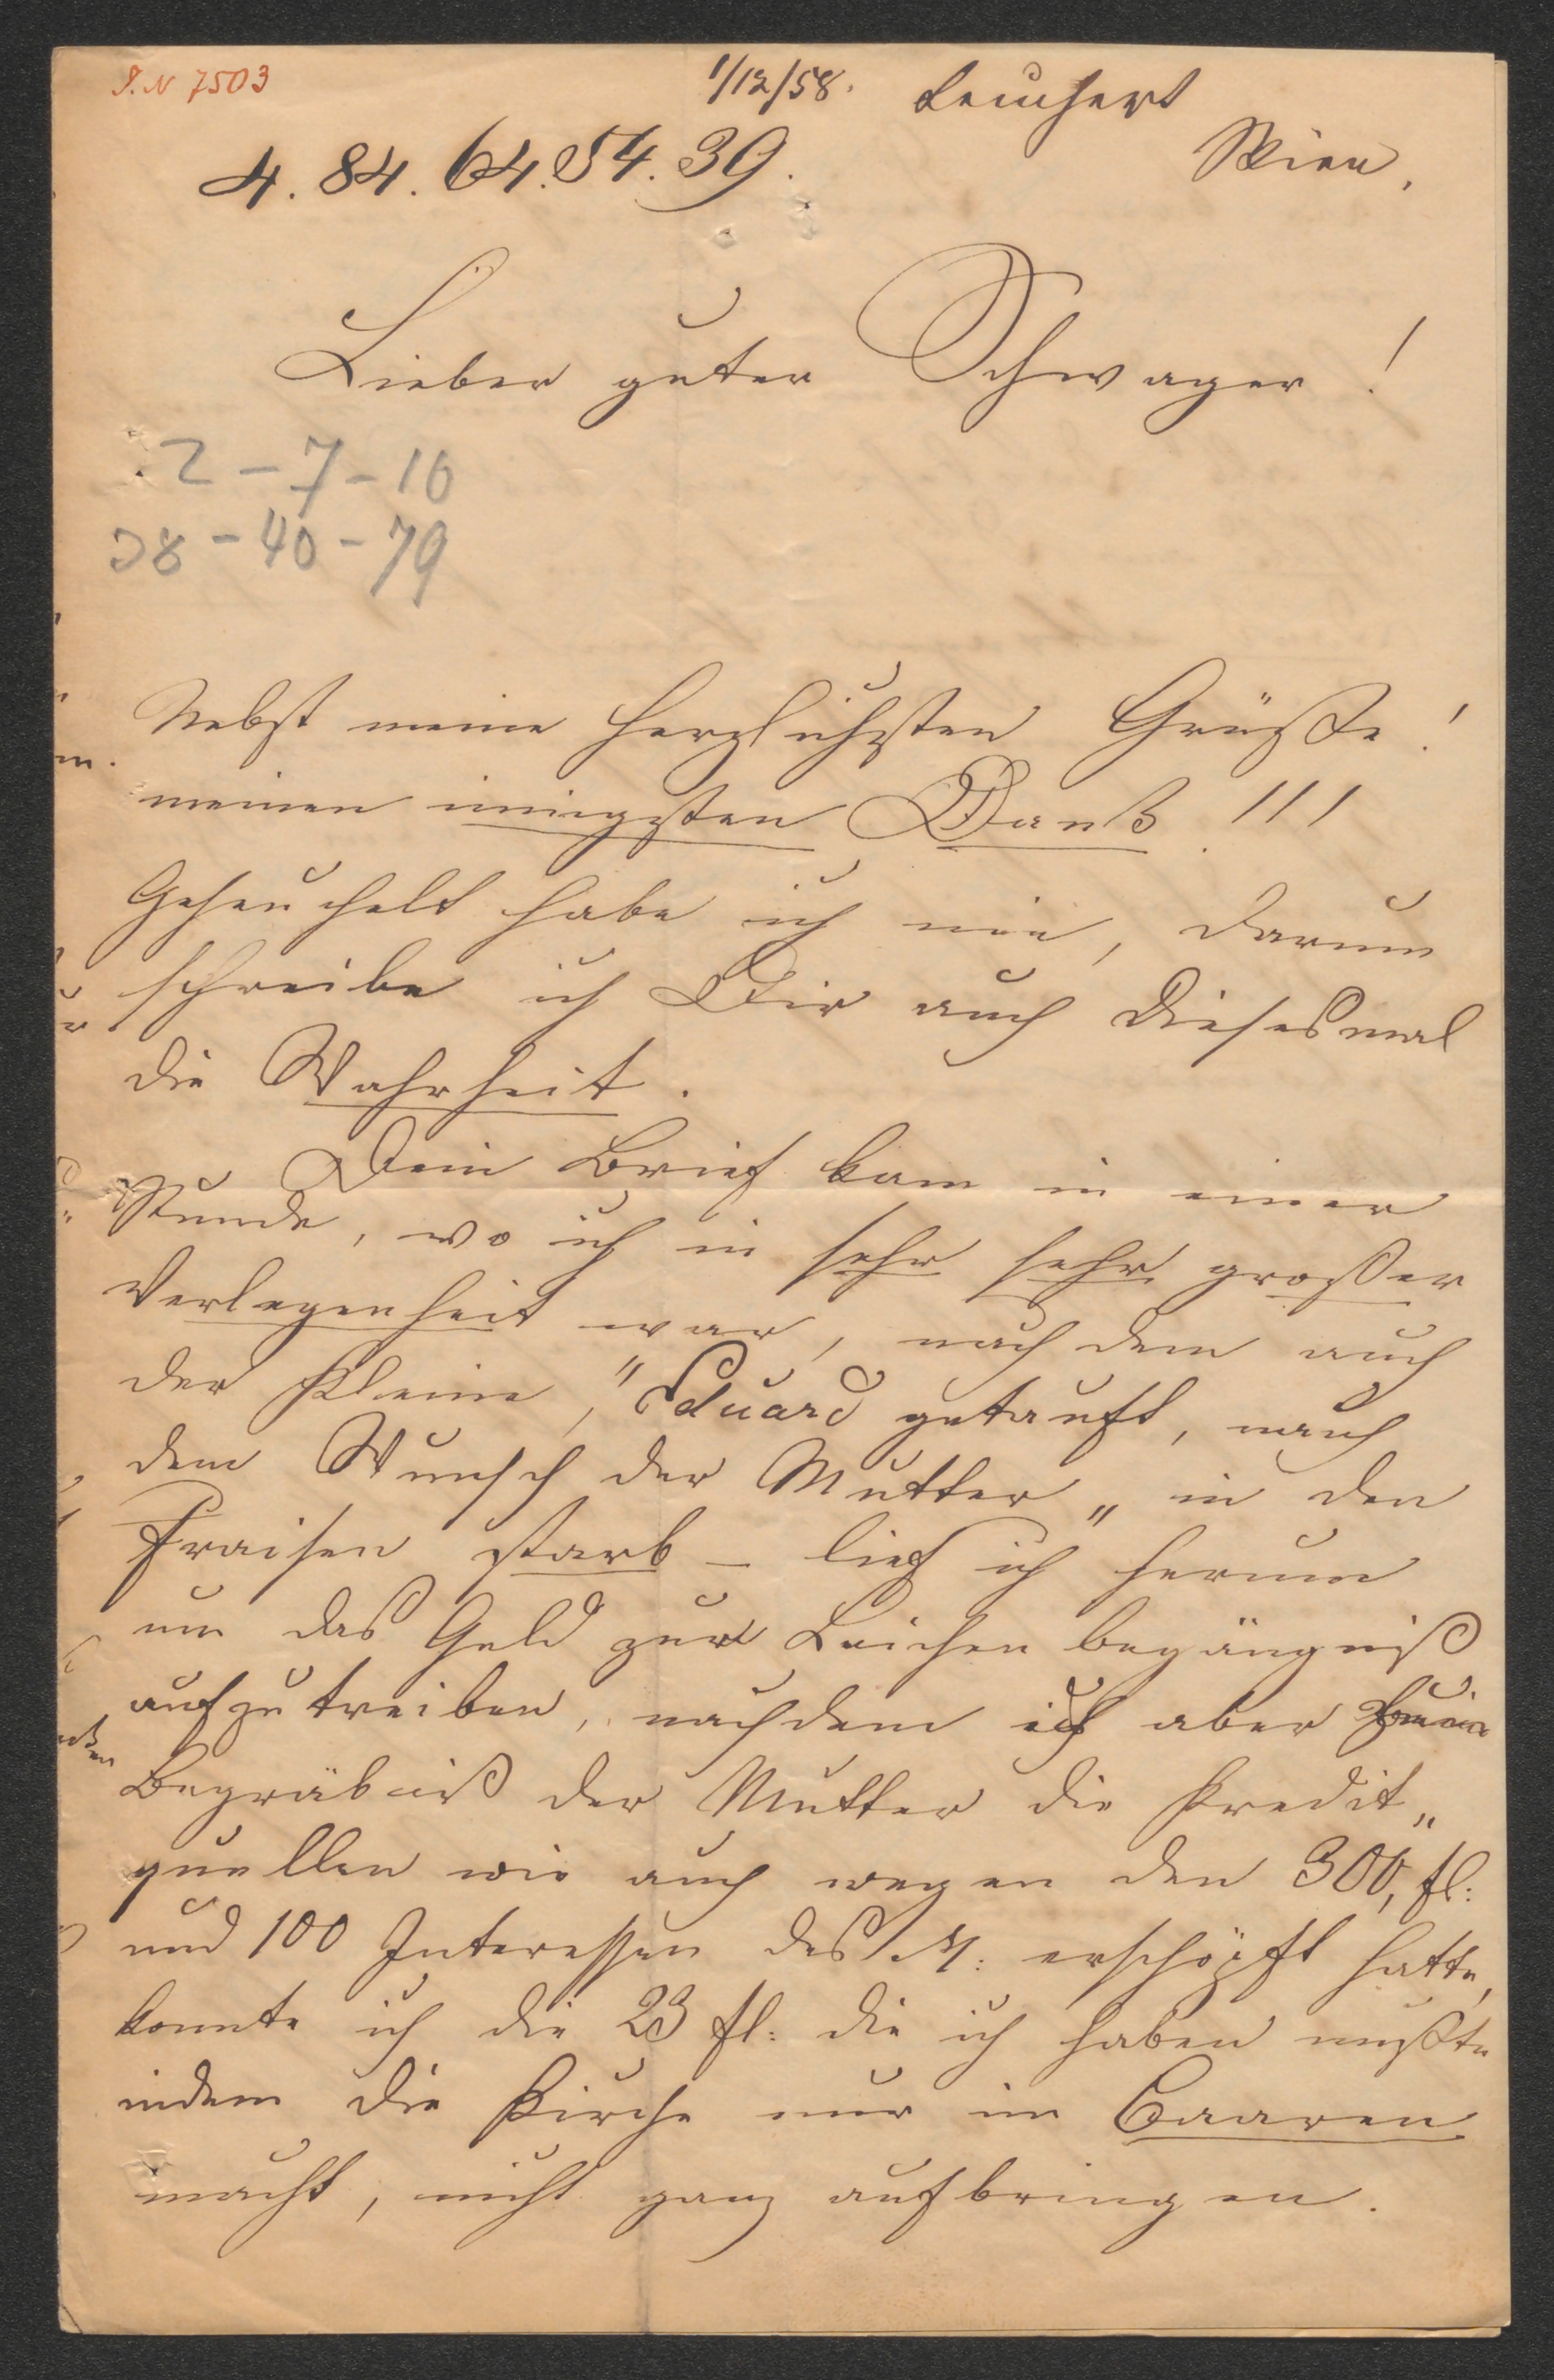 I.N 7503
1/12/58. Leuchert
4. 84. 64. 54. 39. Wien,
Lieber guter Schwager!
2-7-10
38-40-79
Nebst meine herzlichsten Grüße!
meinen innigsten Dank!!!
Geheuchelt habe ich nie, darum
schreibe ich Dir auch diesesmal
die Wahrheit.
Dein Brief kam in einer
Stunde, wo ich in sehr sehr großer
Verlegenheit war, nach dem auch
der Kleine, "Eduard getauft, nach
dem Wunsch der Mutter" in den
Fraisen starb – lief ich herum
um das Geld zur Leichen begängniß
aufzutreiben, nachdem ich aber
Begräbniß der Mutter die Kredit„
quellen wie auch wegen den 300, fl:
und 100 Interessen des M: erschöpft hatte,
konnte ich die 23 fl: die ich haben mußte
indem die Kirche nur im Baaren
macht, nicht ganz aufbringen.